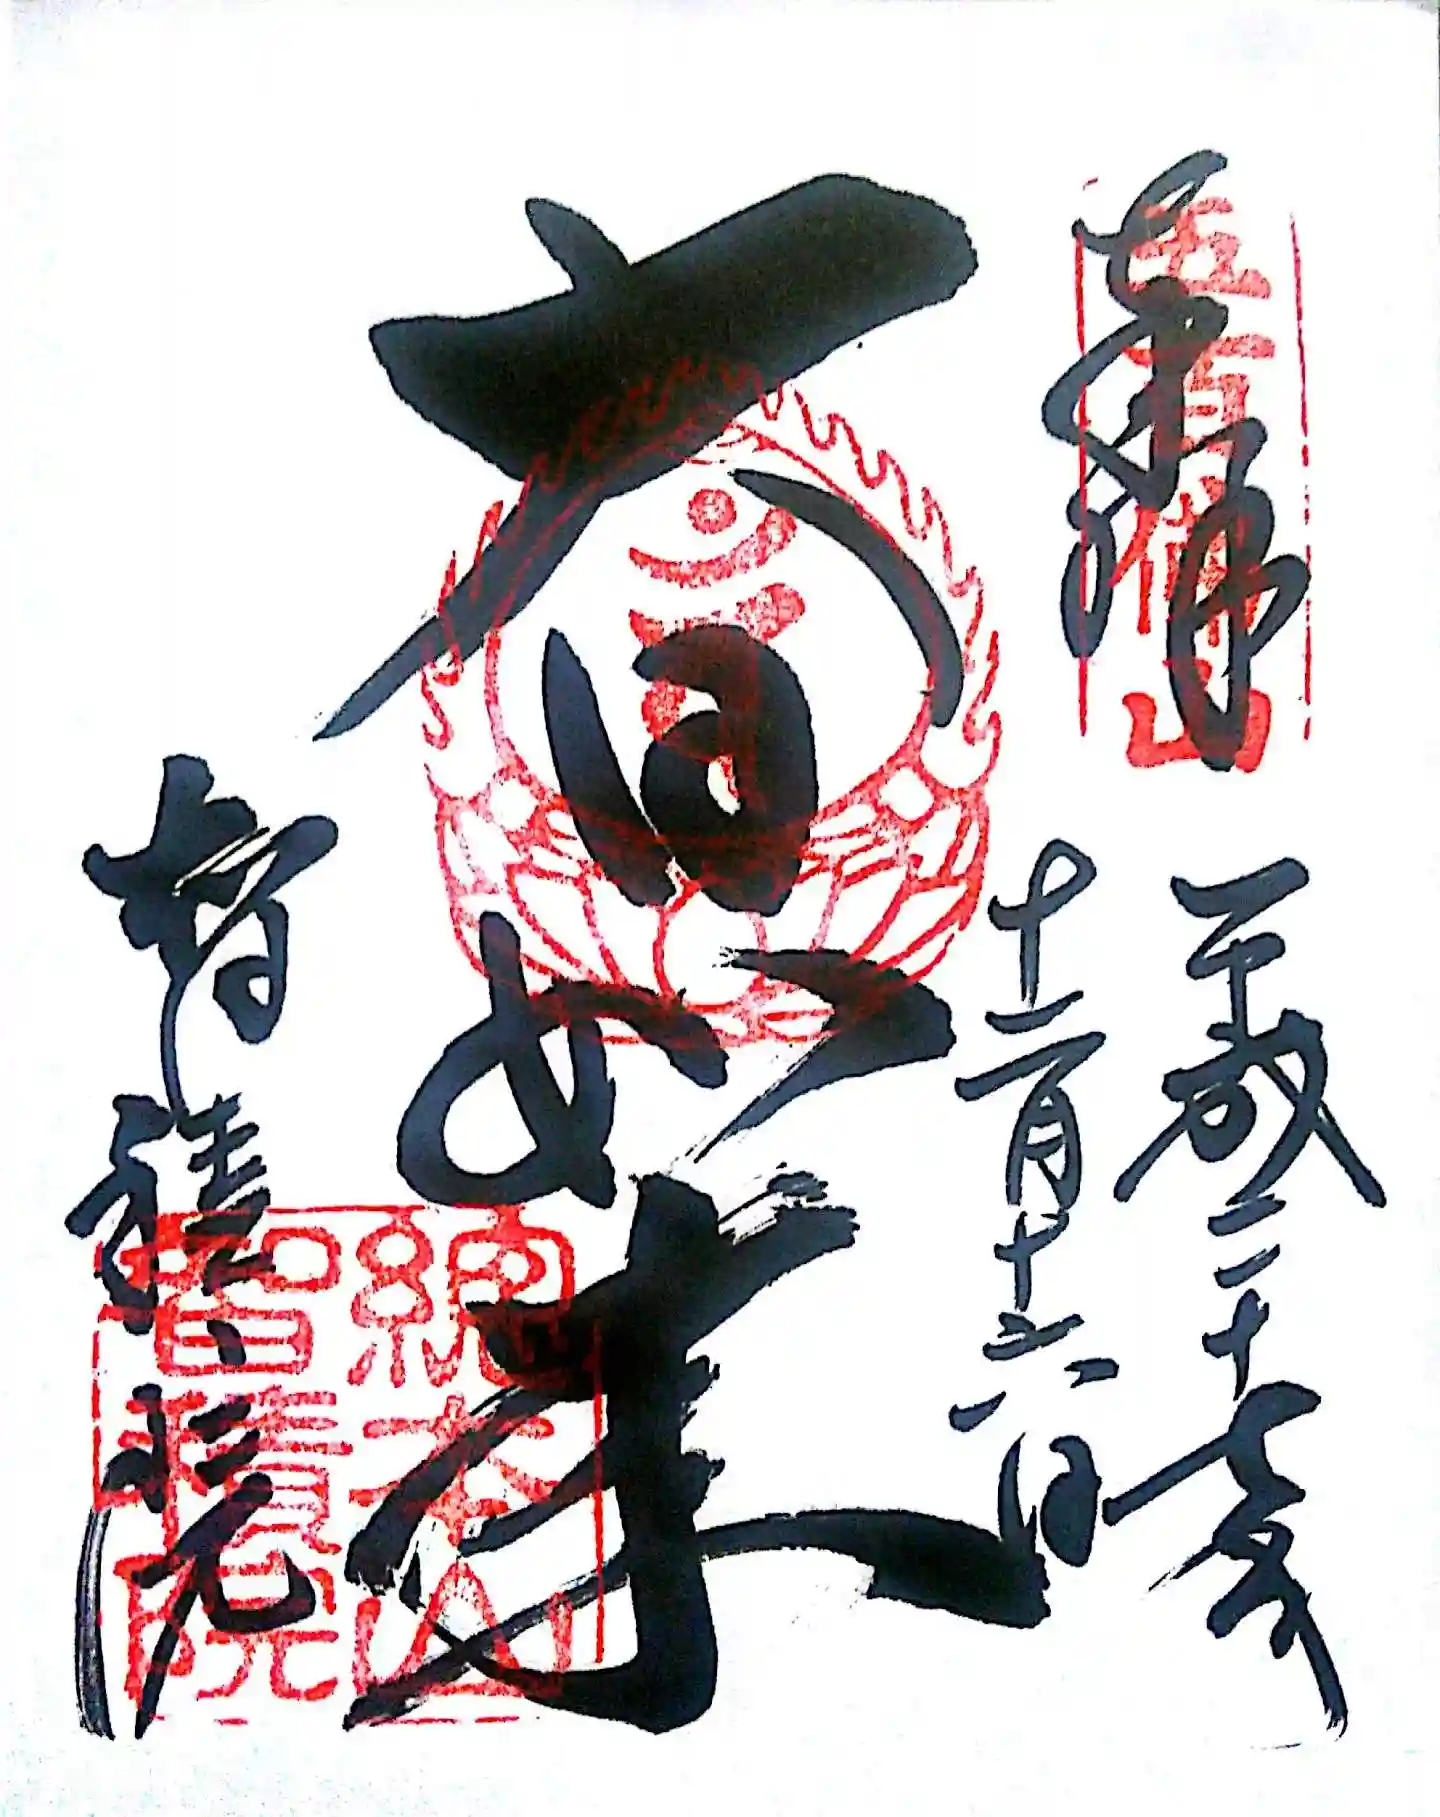 五百佛山
奉拝
平成二十
十二月十六日
大日如来
智積院
総本山
智積院